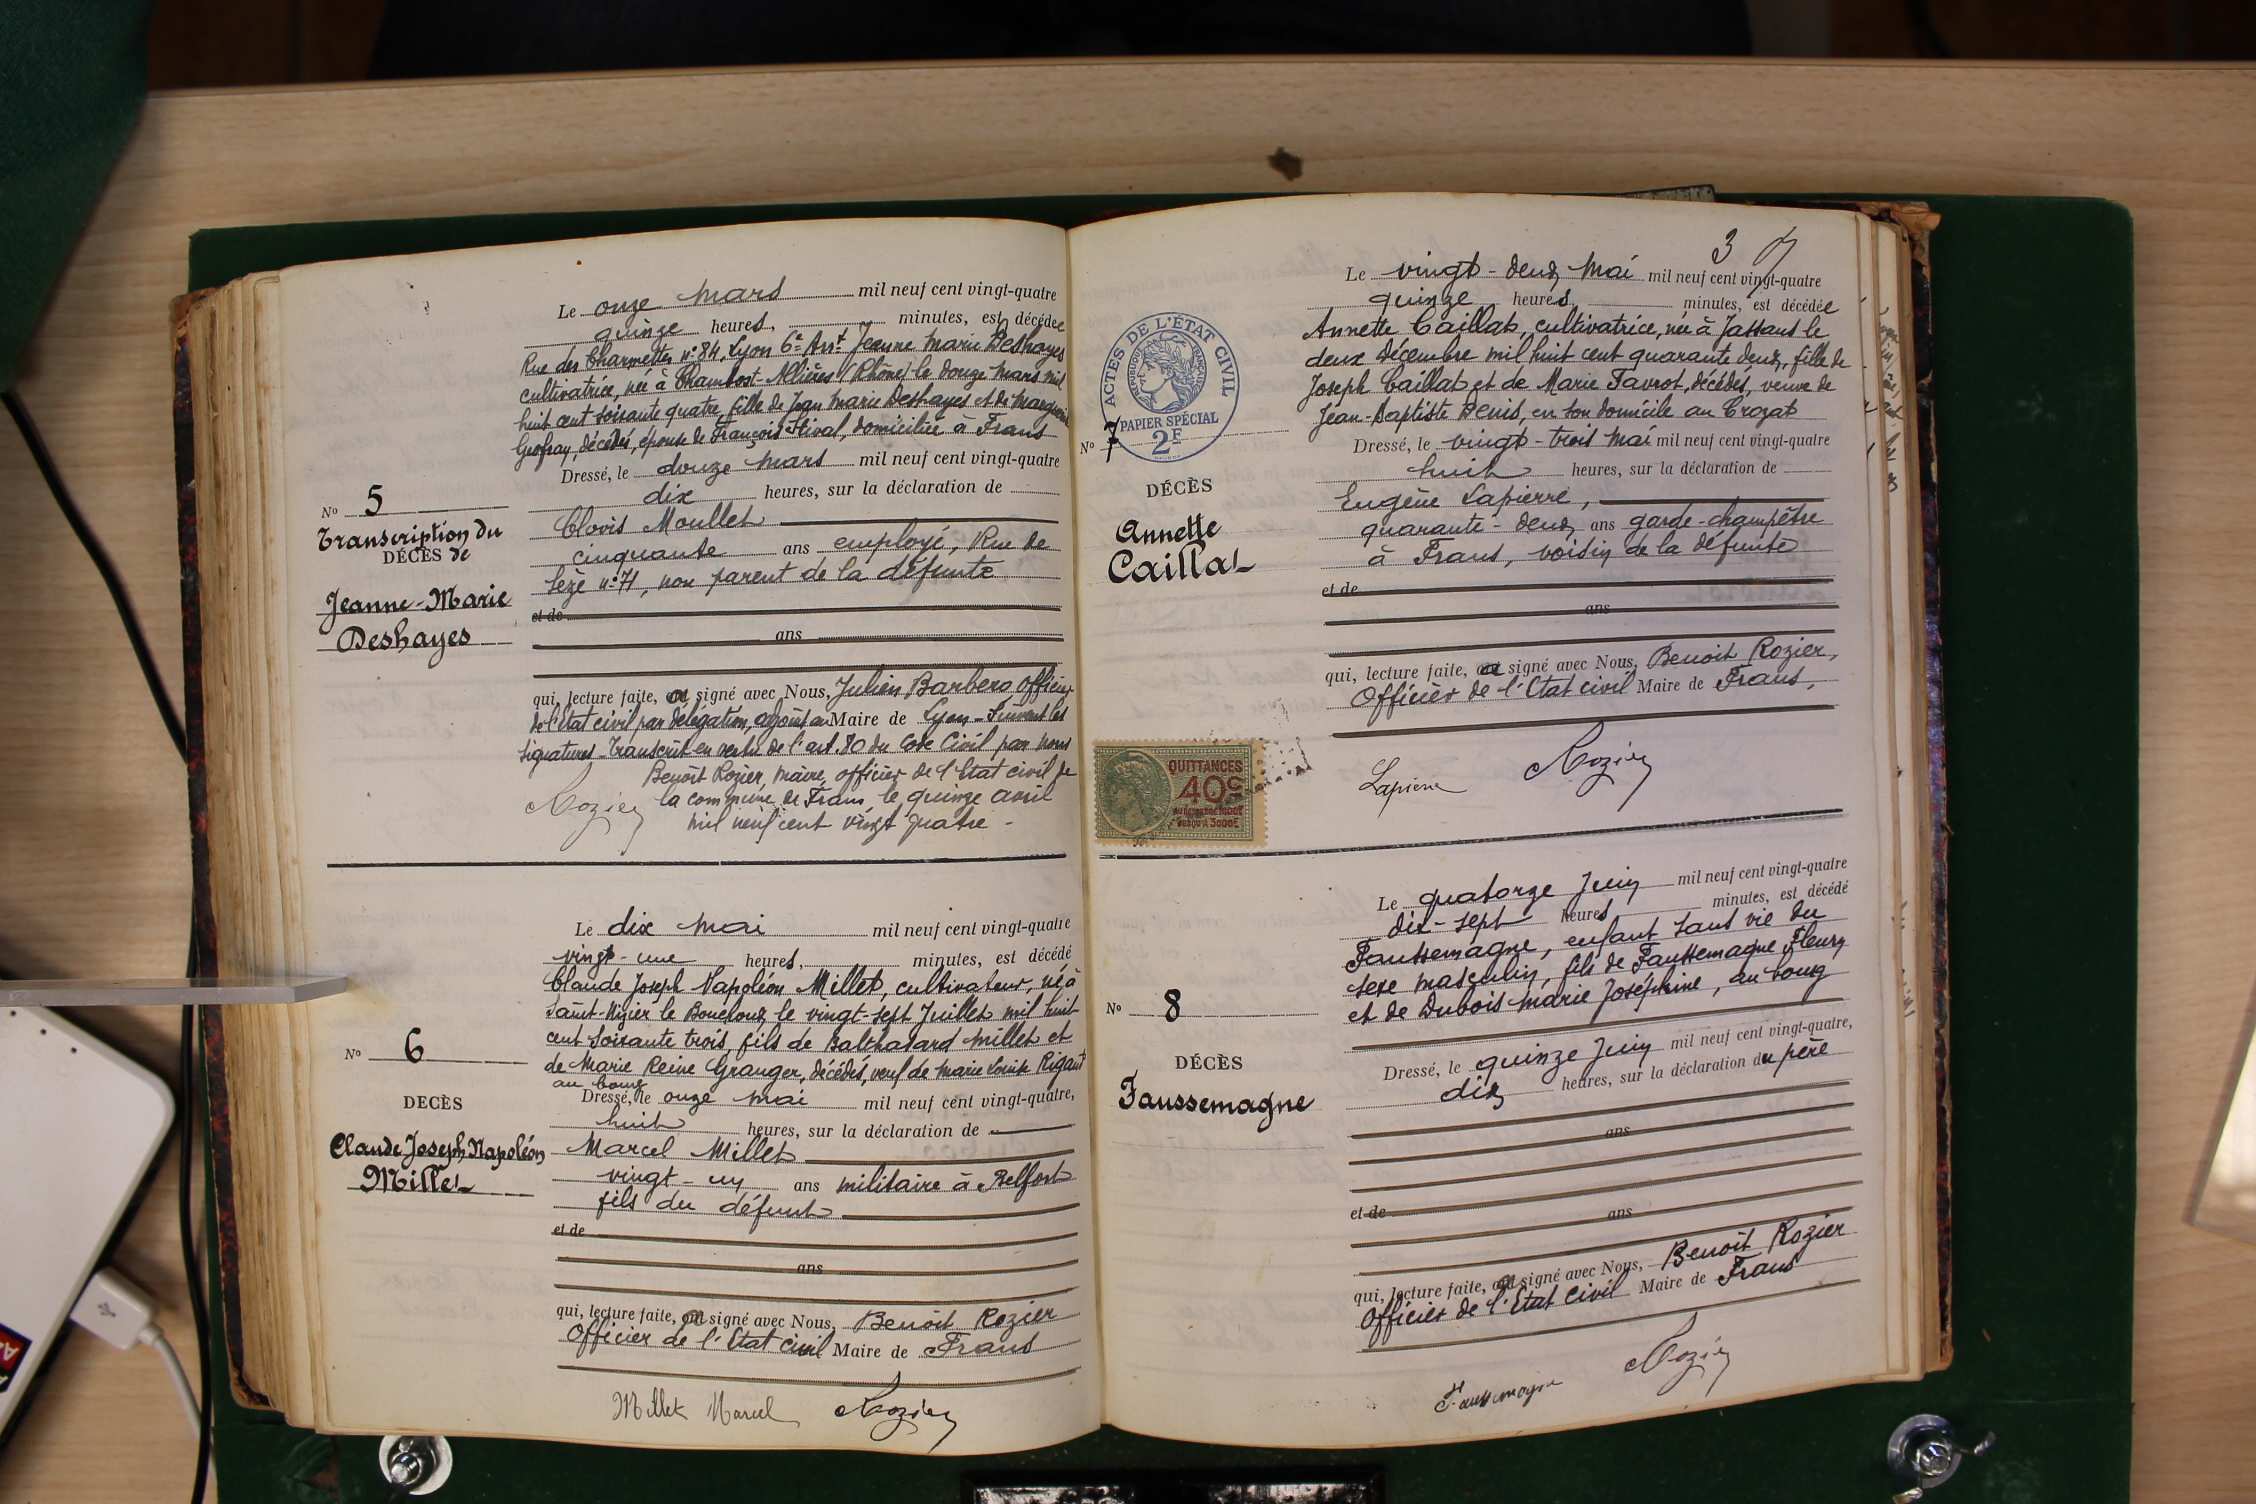 Le onze mars mil neuf cent vingt-quatre
quinze heures, minutes, est décédée
Rue des Charmettes n° 84, Lyon 6e Arrt Jeanne Marie Deshayes
cultivatrice, née à Chambost-Allières (Rhône) le douze mars mil
huit cent soixante quatre, fille de Jean Marie Deshayes et de Marguerite
Geofray, décédés, épouse de François Stival, domiciliée à Frans
Dressé, le douze mars mil neuf cent vingt-quatre
dix heures, sur la déclaration de
Clovis Moullet
cinquante ans employé, Rue de
Sèze n° 71, non parent de la défunte
et de
ans
qui, lecture faite, a signé avec Nous, Julien Barbero, officier
de l'état civil par délégation, adjoint au Maire de Lyon - Suivent les
signatures - Transcrit en vertu de l'art. 80 du Code Civil par nous
Benoît Rozier, maire, officier de l'Etat civil de
la commune de Frans, le quinze avril
mil neuf cent vingt quatre -
Rozier
N° 5
Transcription du
DÉCÈS de
Jeanne-Marie
Deshayes
Le dix mai mil neuf cent vingt-quatre
vingt-une heures, minutes, est décédé
Claude Joseph Napoléon Millet, cultivateur, né à
Saint-Nizier le Bouchoux le vingt-sept Juillet mil huit
cent soixante trois, fils de Balthasard Millet et
de Marie Reine Granger, décédés, veuf de Marie Louise Rigaut
au bourg
Dressé, le onze mai mil neuf cent vingt-quatre,
huit heures, sur la déclaration de
Marcel Millet
vingt-un ans militaire à Belfort
fils du défunt
et de
ans
qui, lecture faite, a signé avec Nous, Benoît Rozier
Officier de l'Etat civil Maire de Frans
Millet Marcel Rozier
N° 6
DÉCÈS
Claude Joseph Napoléon
Millet
3
Le vingt-deux mai mil neuf cent vingt-quatre
quinze heures, minutes, est décédée
Annette Caillat, cultivatrice, née à Jassans le
deux Décembre mil huit cent quarante deux, fille de
Joseph Caillat et de Marie Favrot, décédés, veuve de
Jean-Baptiste Denis, en son domicile au Crozat
Dressé, le vingt-trois mai mil neuf cent vingt-quatre
huit heures, sur la déclaration de
Eugène Lapierre,
quarante-deux ans garde-champêtre
à Frans, voisin de la défunte
et de
ans
qui, lecture faite, a signé avec Nous, Benoît Rozier,
Officier de l'Etat civil Maire de Frans,
Lapierre Rozier
ACTES DE L'ÉTAT CIVIL
RÉPUBLIQUE FRANÇAISE
PAPIER SPÉCIAL
2F
N° 7
DÉCÈS
Annette
Caillat
QUITTANCES
40c
Le quatorze Juin mil neuf cent vingt-quatre
dix-sept heures minutes, est décédé
Faussemagne, enfant sans vie du
sexe masculin, fils de Faussemagne Fleury
et de Dubois Marie Joséphine, au bourg
Dressé, le quinze Juin mil neuf cent vingt-quatre,
dix heures, sur la déclaration du père
ans
et de
ans
qui, lecture faite, a signé avec Nous, Benoît Rozier
Officier de l'Etat civil Maire de Frans
Faussemagne Rozier
N° 8
DÉCÈS
Faussemagne